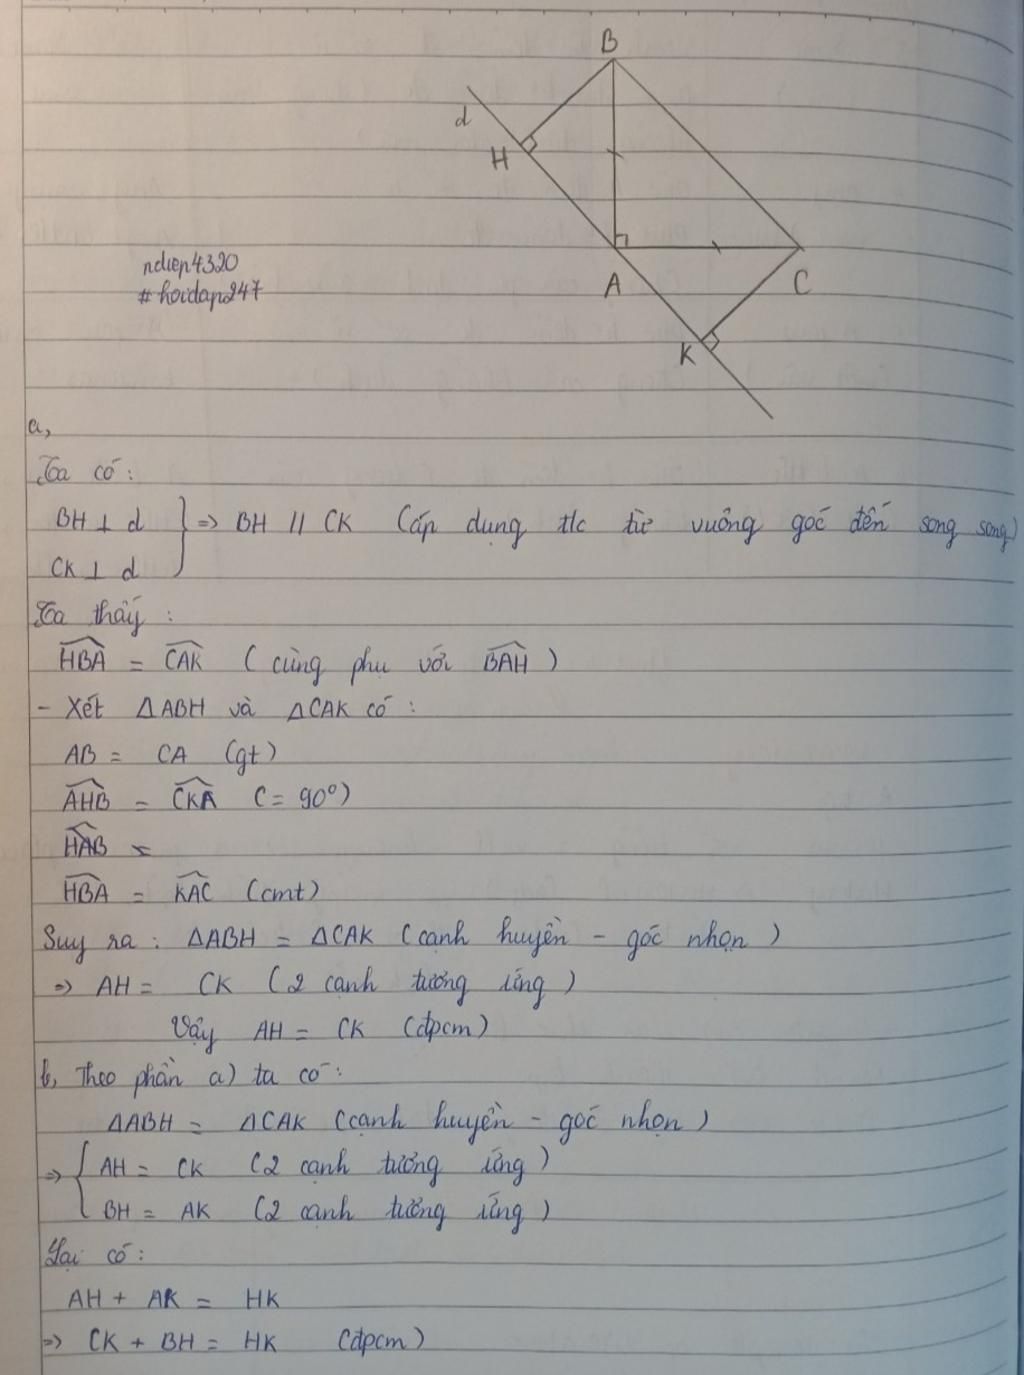 B
d
H
A
C
K
ndiep4320
#hoidap247
a,
Ta có:
BH ⊥ d
CK ⊥ d
} => BH // CK (áp dụng t/c từ vuông góc đến song song)
Ta thấy:
HBA = CAK (cùng phụ với BAH)
- Xét ΔABH và ΔCAK có:
AB = CA (gt)
AHB = CKA (= 90°)
HBA = KAC (cmt)
Suy ra: ΔABH = ΔCAK (cạnh huyền - góc nhọn)
=> AH = CK (2 cạnh tương ứng)
Vậy AH = CK (đpcm)
b, Theo phần a) ta có:
ΔABH = ΔCAK (cạnh huyền - góc nhọn)
=> { AH = CK (2 cạnh tương ứng)
BH = AK (2 cạnh tương ứng)
Lại có:
AH + AK = HK
=> CK + BH = HK (đpcm)